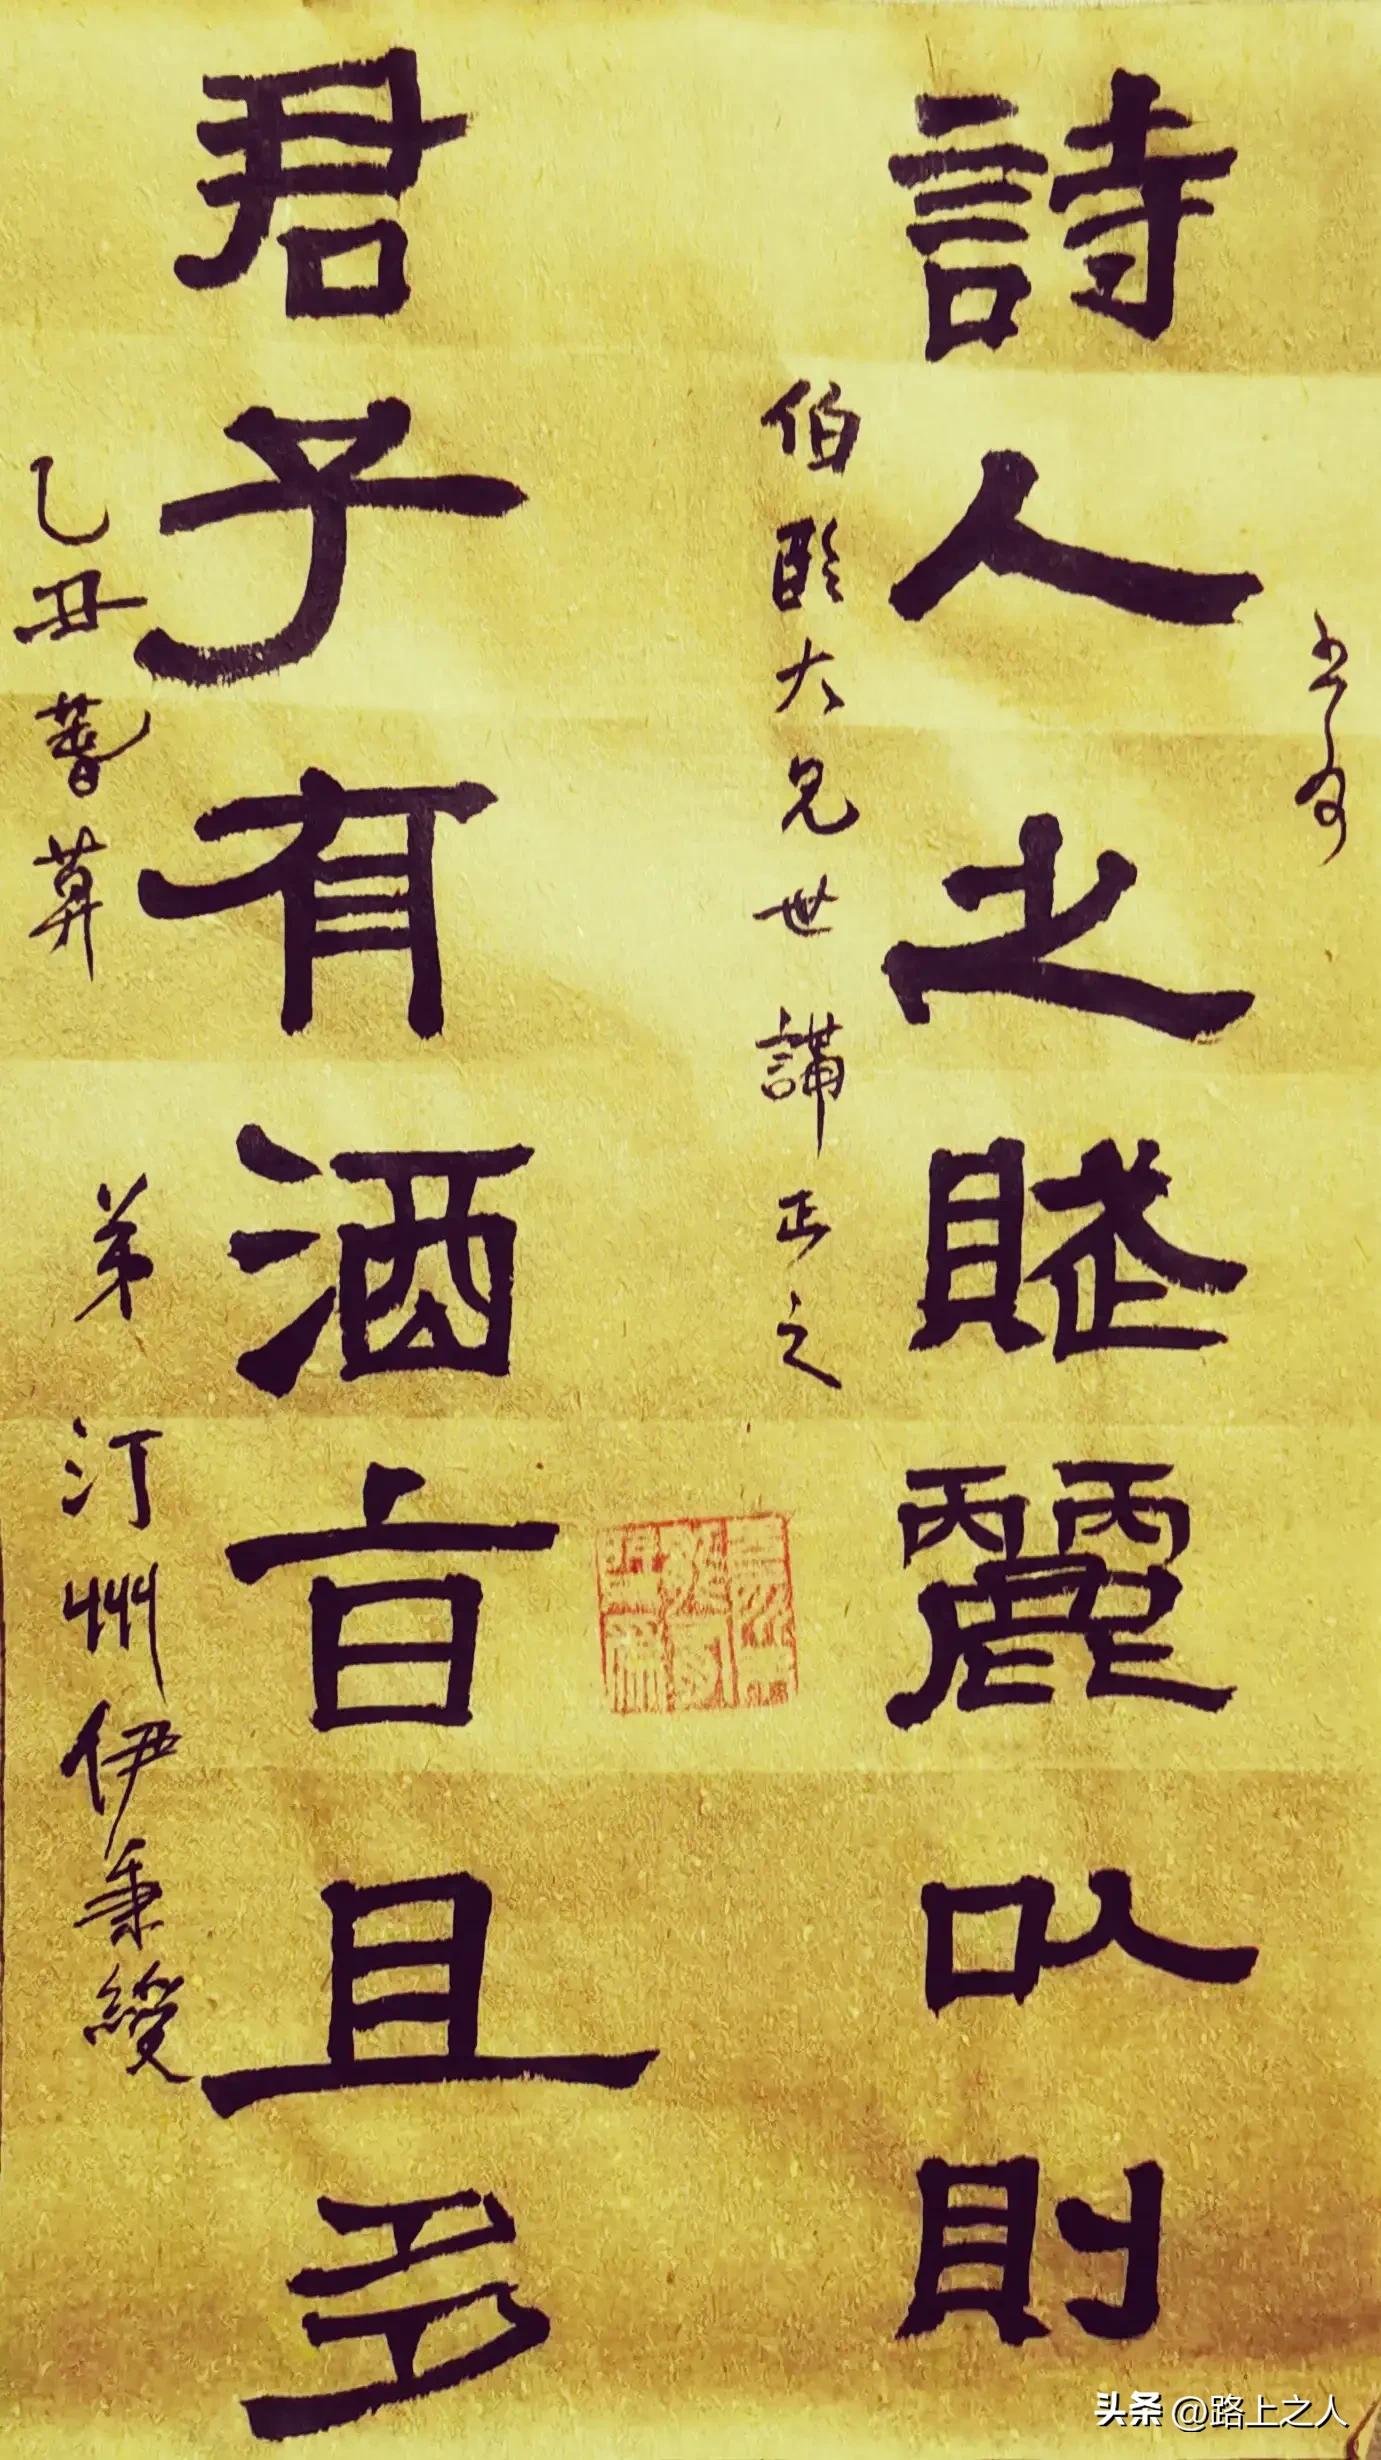 詩人之賦麗以則
伯
大兄世講正之
君子有酒旨且多
乙丑暮
弟汀州伊秉綬
头条 @路上之人